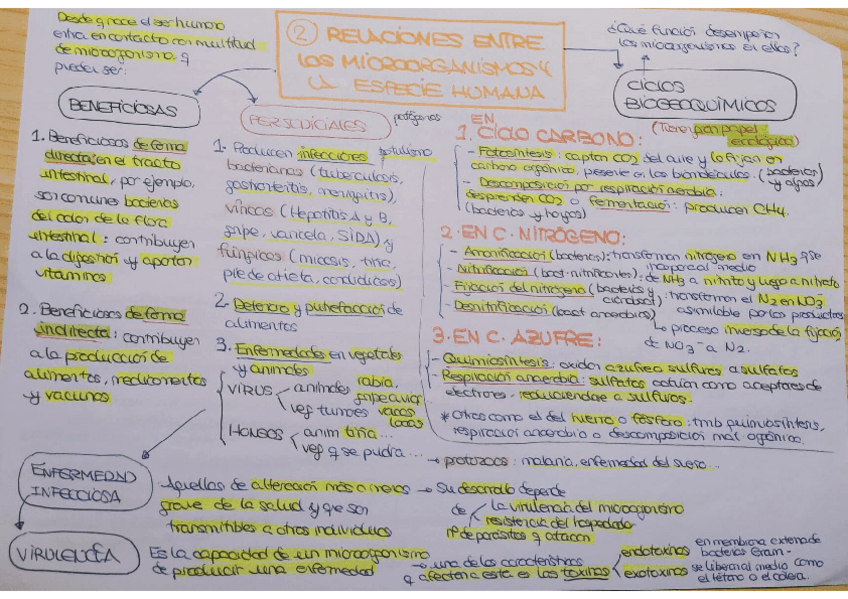 Desde q nace el ser humano
entra en contacto con multitud
de microorganismos, q
pueden ser:
② RELACIONES ENTRE
LOS MICROORGANISMOS Y
LA ESPECIE HUMANA
¿Qué función desempeñan
los microorganismos en ellos?
CICLOS
BIOGEOQUÍMICOS
(Tienen gran papel
ecológico)
BENEFICIOSAS
1. Beneficiosos de forma
directa: en el tracto
intestinal, por ejemplo,
son comunes bacterias
del colon de la flora
intestinal: contribuyen
a la digestión y aportan
vitaminas
2. Beneficiosos de forma
indirecta: contribuyen
a la producción de
alimentos, medicamentos
y vacunas
PERJUDICIALES
patógenos
1. Producen infecciones
botulismo
bacterianas (tuberculosis,
gastroenteritis, meningitis),
víricas (Hepatitis A y B,
gripe, varicela, SIDA) y
fúngicas (micosis, tiña,
pie de atleta, candidiasis)
2. Deterioro y putrefacción de
alimentos
3. Enfermedades en vegetales
y animales
VIRUS
animales rabia,
gripe aviar
veg tumores vacas
locas
HONGOS
anim tiña...
veg q se pudra...
→ protozoos: malaria, enfermedad del sueño...
EN
1. CICLO CARBONO:
- Fotosíntesis: captan CO2 del aire y lo fijan en
carbono orgánico, presente en las biomoléculas. (bacterias
y algas)
- Descomposición por respiración aerobia:
desprenden CO2 o fermentación: producen CH4.
(bacterias y hongos)
2. EN C. NITRÓGENO:
- Amonificación (bacterias): transforman nitrógeno en NH3 q se
incorpora al medio
- Nitrificación (bact. nitrificantes): de NH3 a nitrito y luego a nitrato
- Fijación del nitrógeno (bacterias y
cianobact): transforman el N2 en NO3-
asimilable por los productores
- Desnitrificación (bact anaerobias)
↳ proceso inverso de la fijación,
de NO3- a N2.
3. EN C. AZUFRE:
- Quimiosíntesis: oxidan azufre o sulfuros a sulfatos
- Respiración anaerobia: sulfatos actúan como aceptores de
electrones, reduciéndose a sulfuros.
* Otros como el del hierro o fósforo: tmb quimiosíntesis,
respiración anaerobia o descomposición mat. orgánica.
ENFERMEDAD
INFECCIOSA
Aquellas de alteración más o menos
grave de la salud y que son
transmitibles a otros individuos
→ Su desarrollo depende
de
la virulencia del microorganismo
resistencia del hospedador
nº de parásitos q atacan
VIRULENCIA
Es la capacidad de un microorganismo
de producir una enfermedad
→ una de las características
q afectan a esta es las toxinas
endotoxinas
en membrana externa de
bacterias Gram -
exotoxinas
se liberan al medio como
el tétano o el cólera.